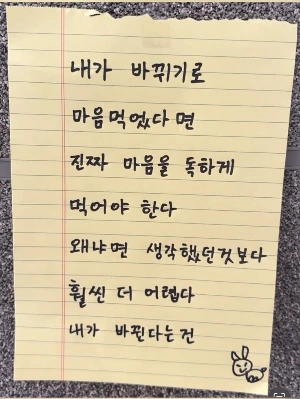 내가 바뀌기로
마음먹었다면
진짜 마음을 독하게
먹어야 한다
왜냐면 생각했던것보다
훨씬 더 어렵다
내가 바뀐다는건